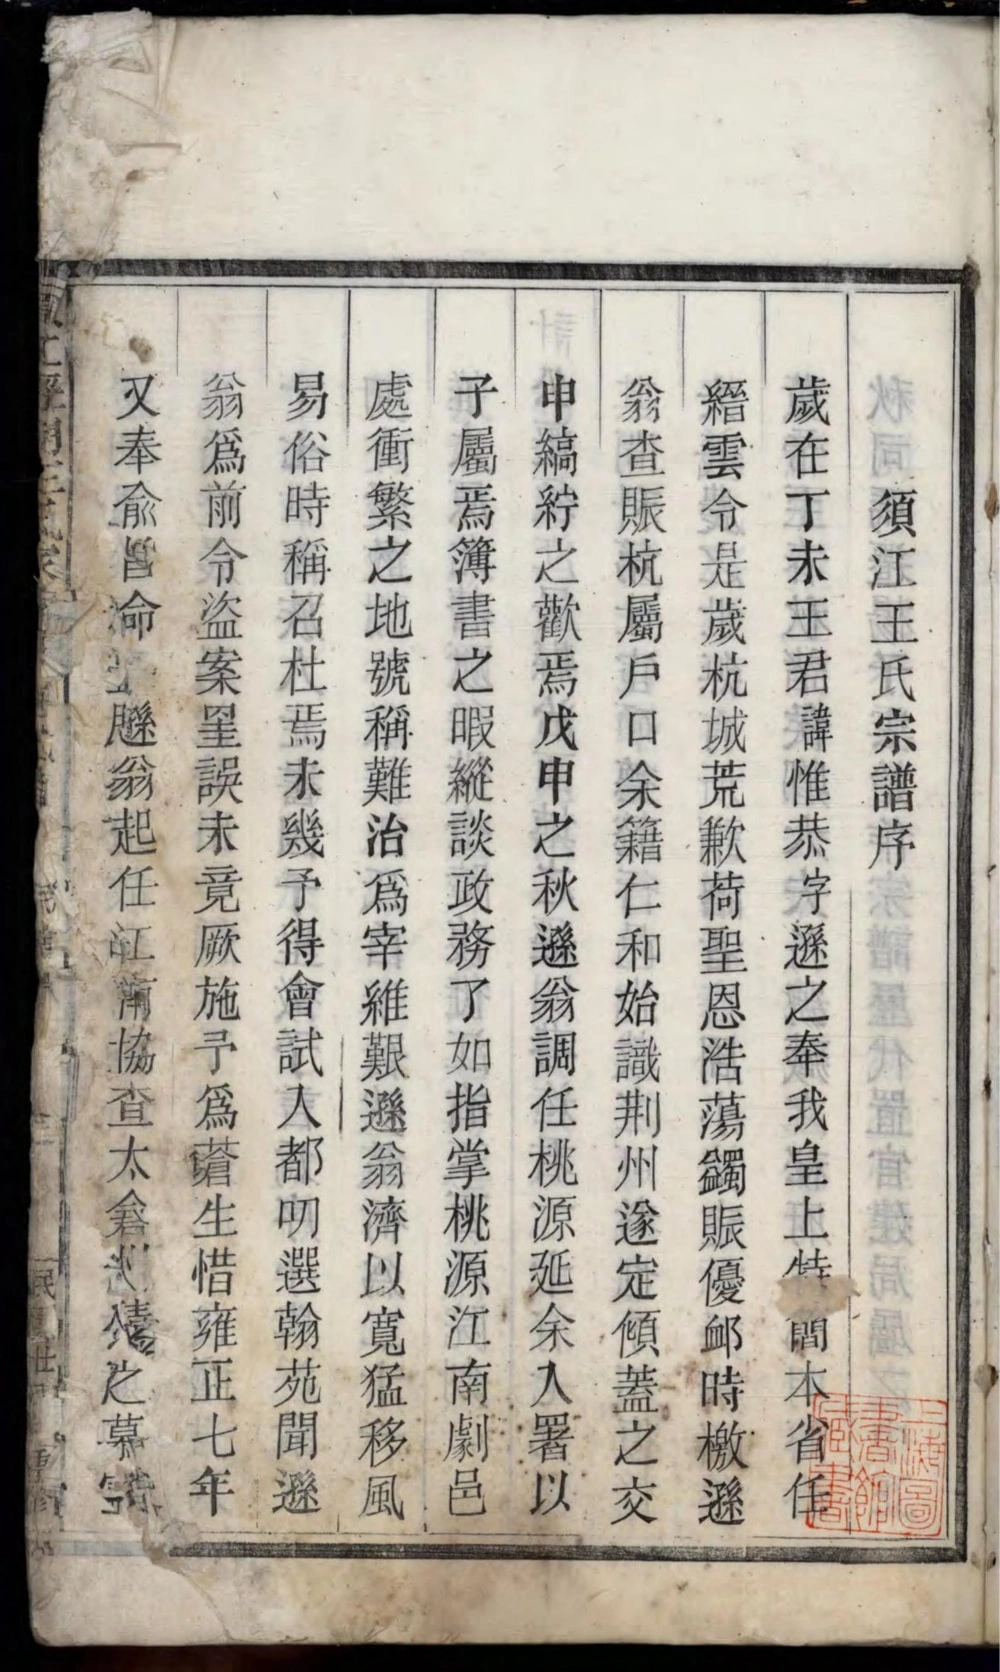 須江王氏宗譜序
歲在丁未王君諱惟恭字遜之奉我皇上特簡本省任
縉雲令是歲杭城荒歉荷聖恩浩蕩蠲賑優邮時檄遜
翁查賑杭屬戶口余籍仁和始識荆州遂定傾蓋之交
申縞紵之歡焉戊申之秋遜翁調任桃源延余入署以
子屬焉簿書之暇縱談政務了如指掌桃源江南劇邑
處衝繁之地號稱難治爲宰維艱遜翁濟以寬猛移風
易俗時稱召杜焉未幾予得會試入都叨選翰苑聞遜
翁爲前令盜案罣誤未竟厥施予爲蒼生惜雍正七年
又奉俞旨命遜翁起任江南協查太倉州積之幕
上海圖書館藏書